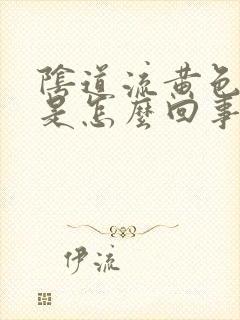 陰道流黃色
是怎麼回事
伊流